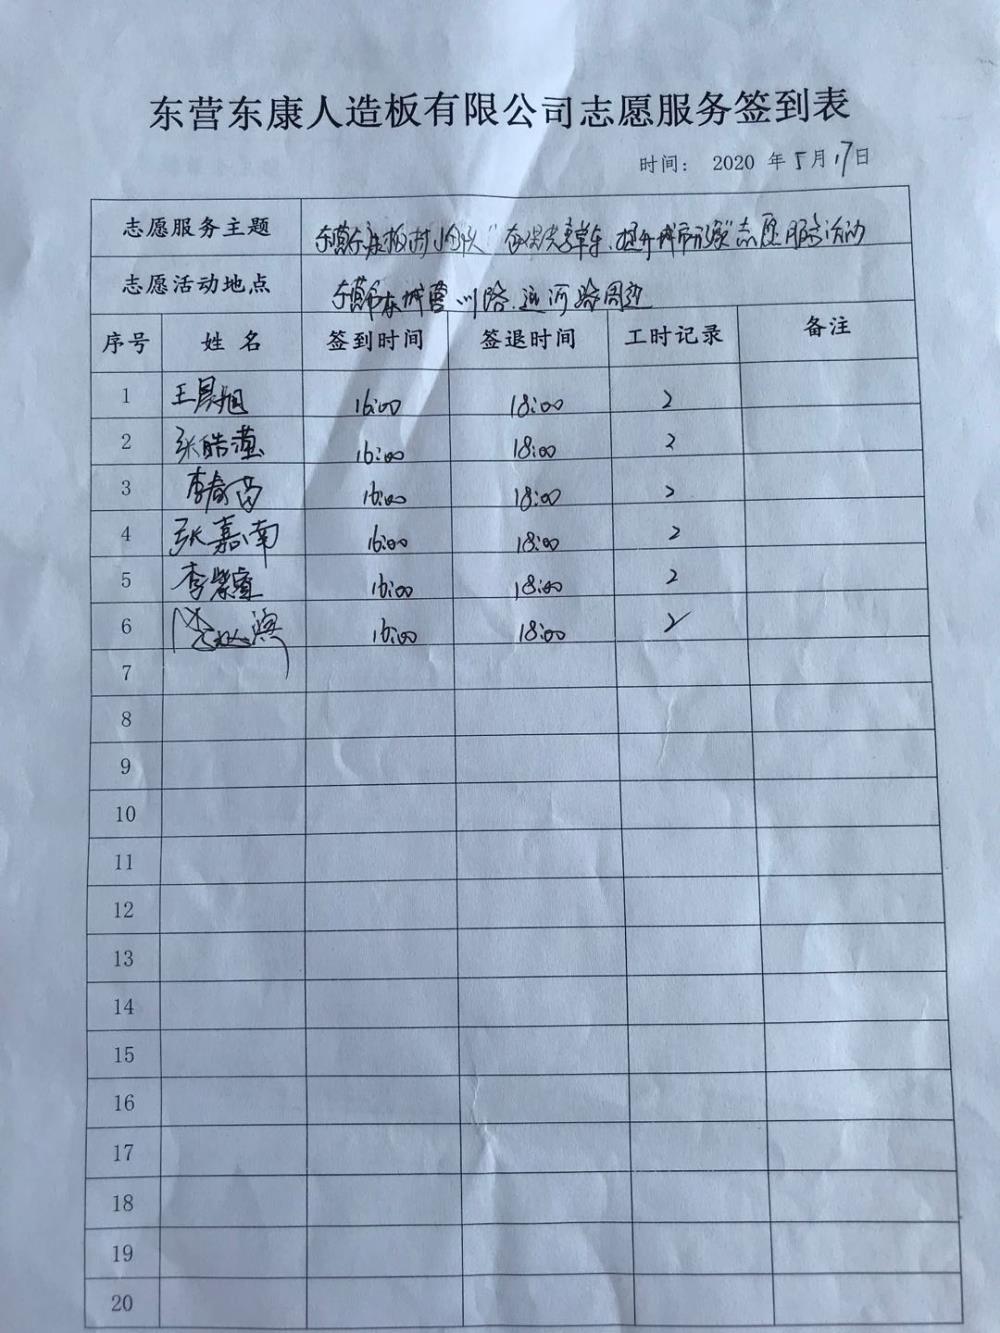 东营东康人造板有限公司志愿服务签到表
时间： 2020 年 5 月 17 日
志愿服务主题 志愿服务活动
志愿活动地点 东营市东城营川路、运河路周边
序号 姓 名 签到时间 签退时间 工时记录 备注
1 王昊旭 16:00 18:00 2
2 张皓 16:00 18:00 2
3 李春 16:00 18:00 2
4 张嘉南 16:00 18:00 2
5 李紫 16:00 18:00 2
6 16:00 18:00 2
7
8
9
10
11
12
13
14
15
16
17
18
19
20